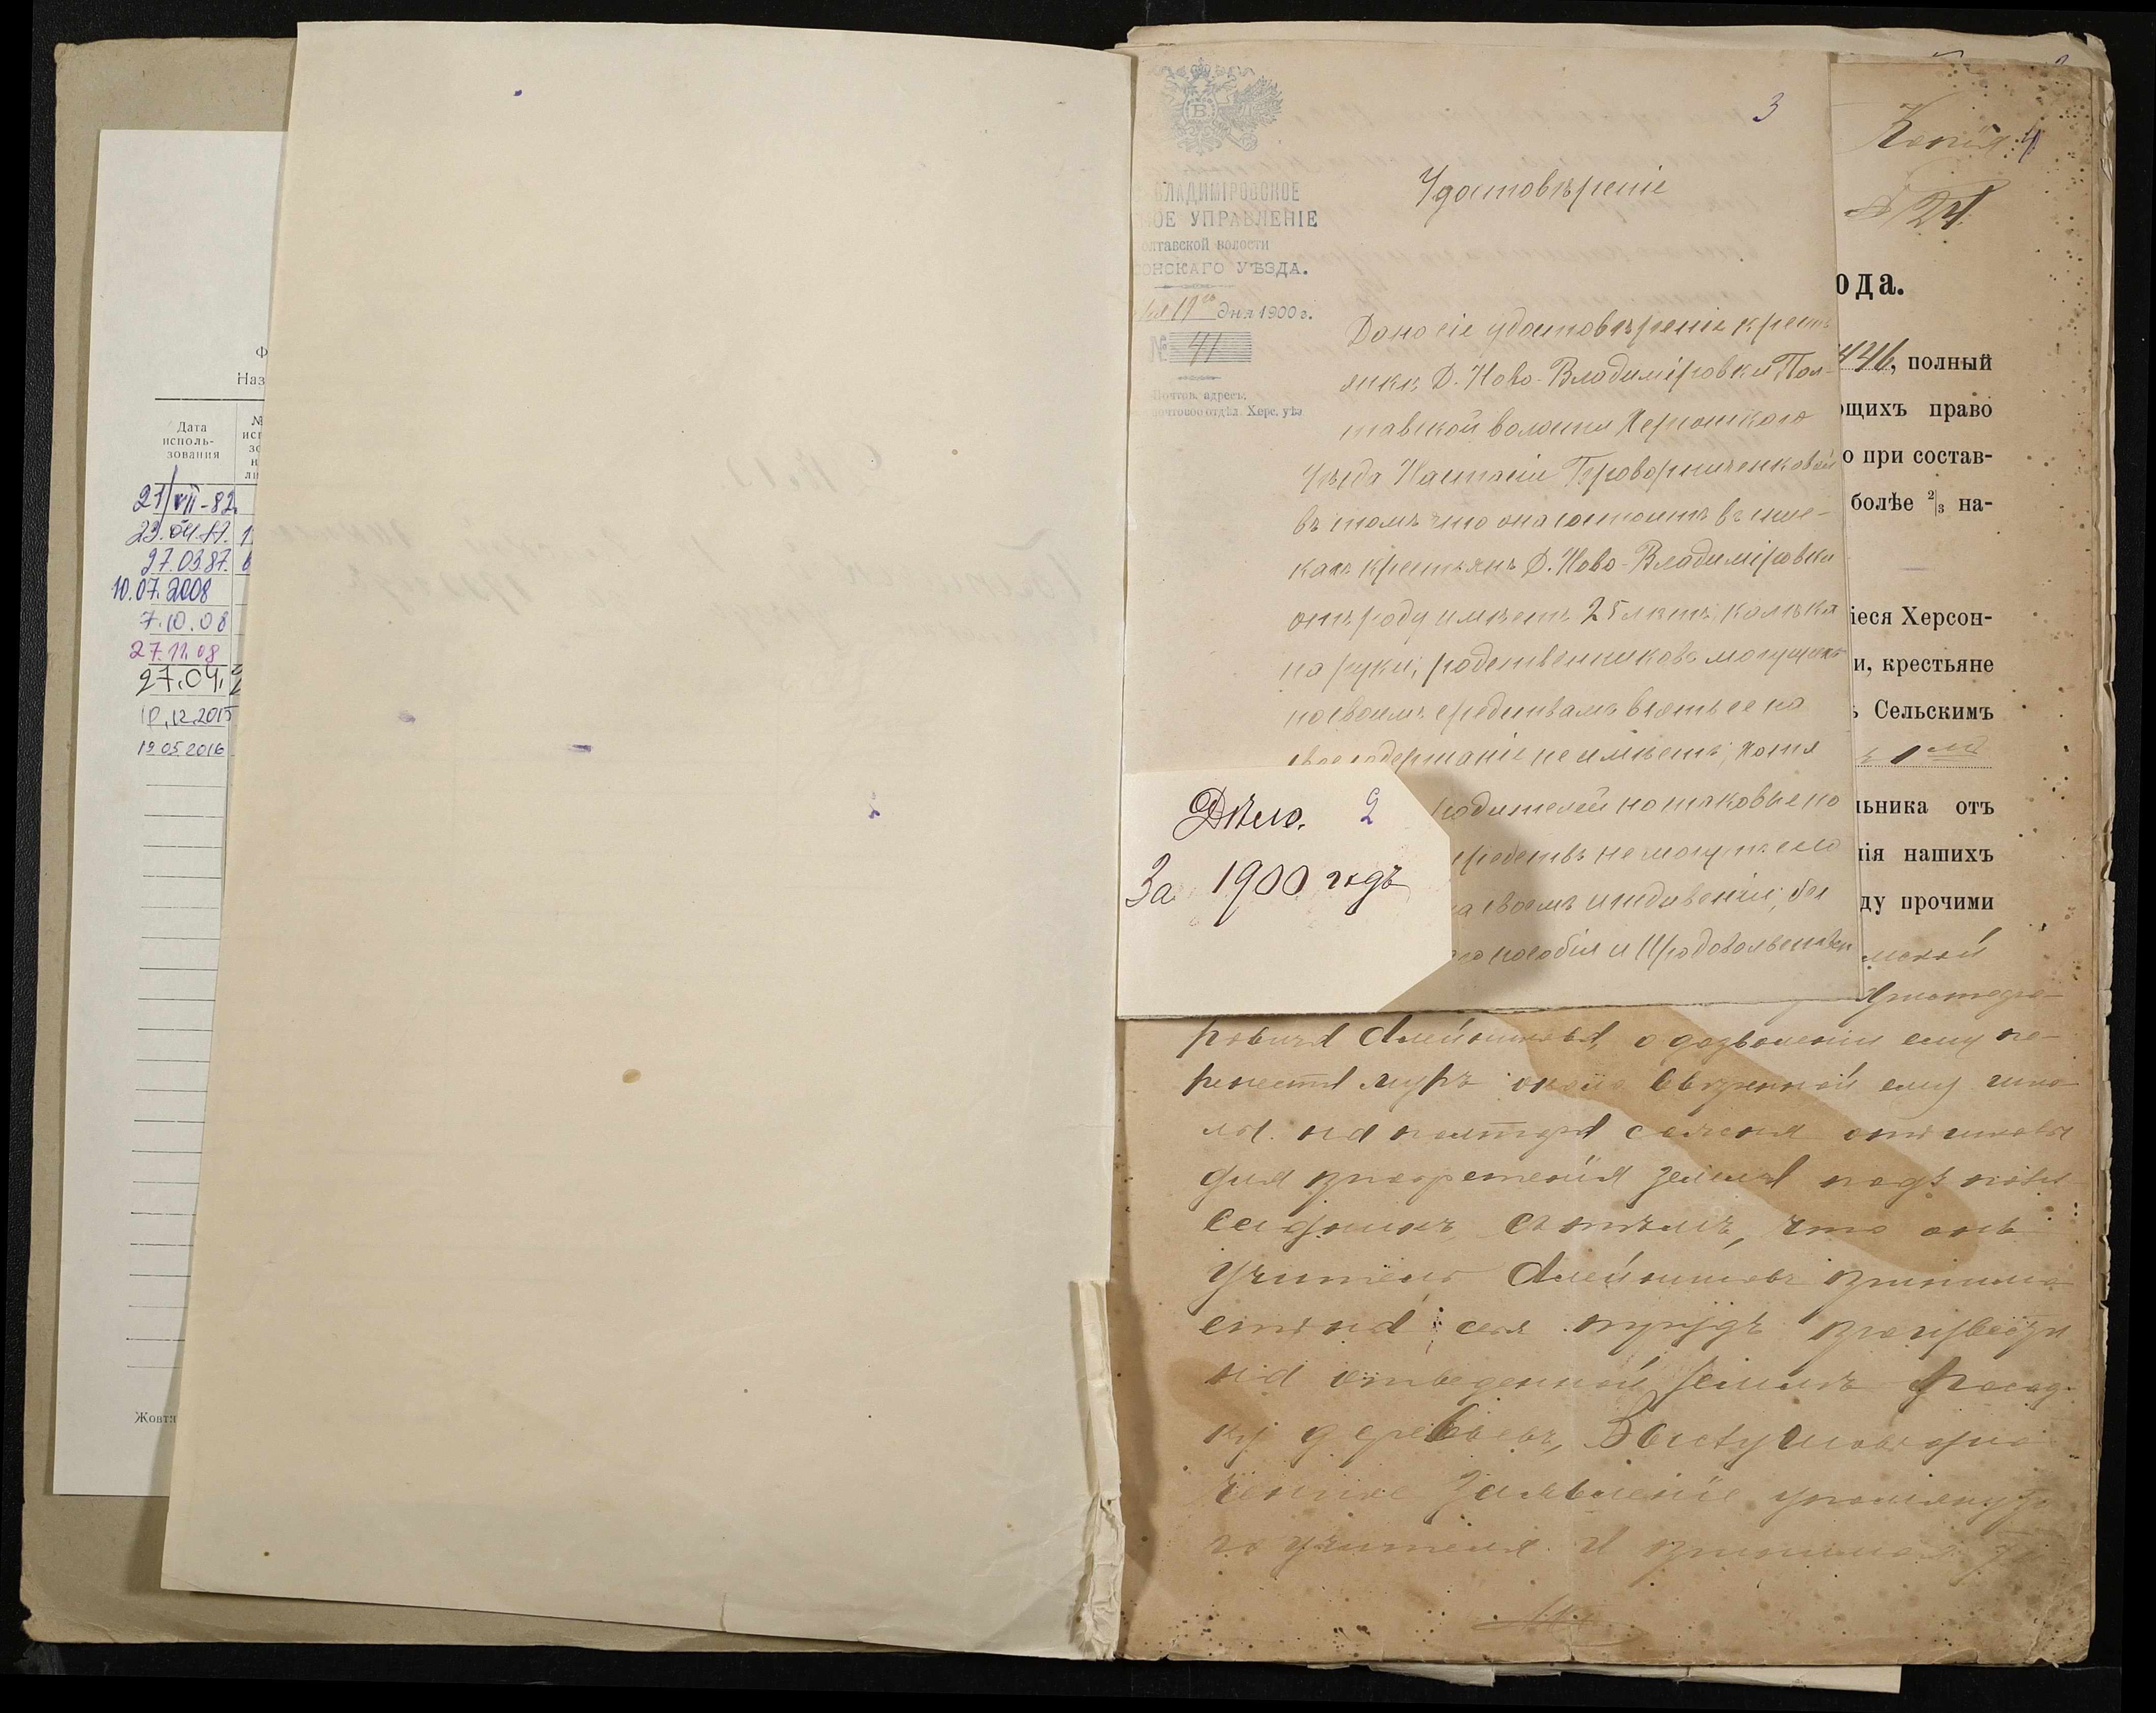 Ф
Наз
Дата
исполь-
зования
№
исп
зо
н
ли
21/VII-82.
23.04.87. 1
27.03.87. 6
10.07.2008
7.10.08
27.11.08
27.04.2
10.12.2015
19 05 2016
Жовтн
Дѣло. 2
За 1900 годъ
3
ВЛАДИМІРОВСКОЕ
НОЕ УПРАВЛЕНІЕ
олтавской волости
ОНСКАГО УѢЗДА.
дня 1900 г.
№ 41
Почтов. адресъ:
почтовое отдѣл. Херс. уѣз.
Удостовѣреніе
Дано сіе удостовѣреніе кресть
янкѣ Д. Ново-Владиміровки Пол-
тавской волости Херсонскаго
Уѣзда Настасіи
въ томъ что она состоитъ въ спис-
кахъ крестьянъ Д. Ново-Владиміровки
отъ роду имѣетъ 25 лѣтъ, калѣка
на руки, родственниковъ могущихъ
по своимъ средствамъ взять ее на
свое содержаніе не имѣетъ, хотя
родителей но таковые по
средствъ не могутъ ея
на своемъ иждивеніи, безъ
пособія и Продовольствен
Копія 4
№ 24
ода.
446, полный
ющихъ право
о при состав-
болѣе 2/3 на-
іеся Херсон-
и, крестьяне
ъ Сельскимъ
ъ 1
льника отъ
нія нашихъ
ду прочими
ровича Алейникова, о дозволеніи ему пе-
ренести муръ около ввѣренной ему шко-
лы на полтора сажня отъ школы
для пріобретенія земли подъ
садикъ съ тѣмъ, что онъ
Учитель Алейниковъ принима
етъ на себя трудъ произвести
на отведенной землѣ посад-
ку деревьевъ, Выслушавъ
заявленіе упомянуто
го учителя и принимая